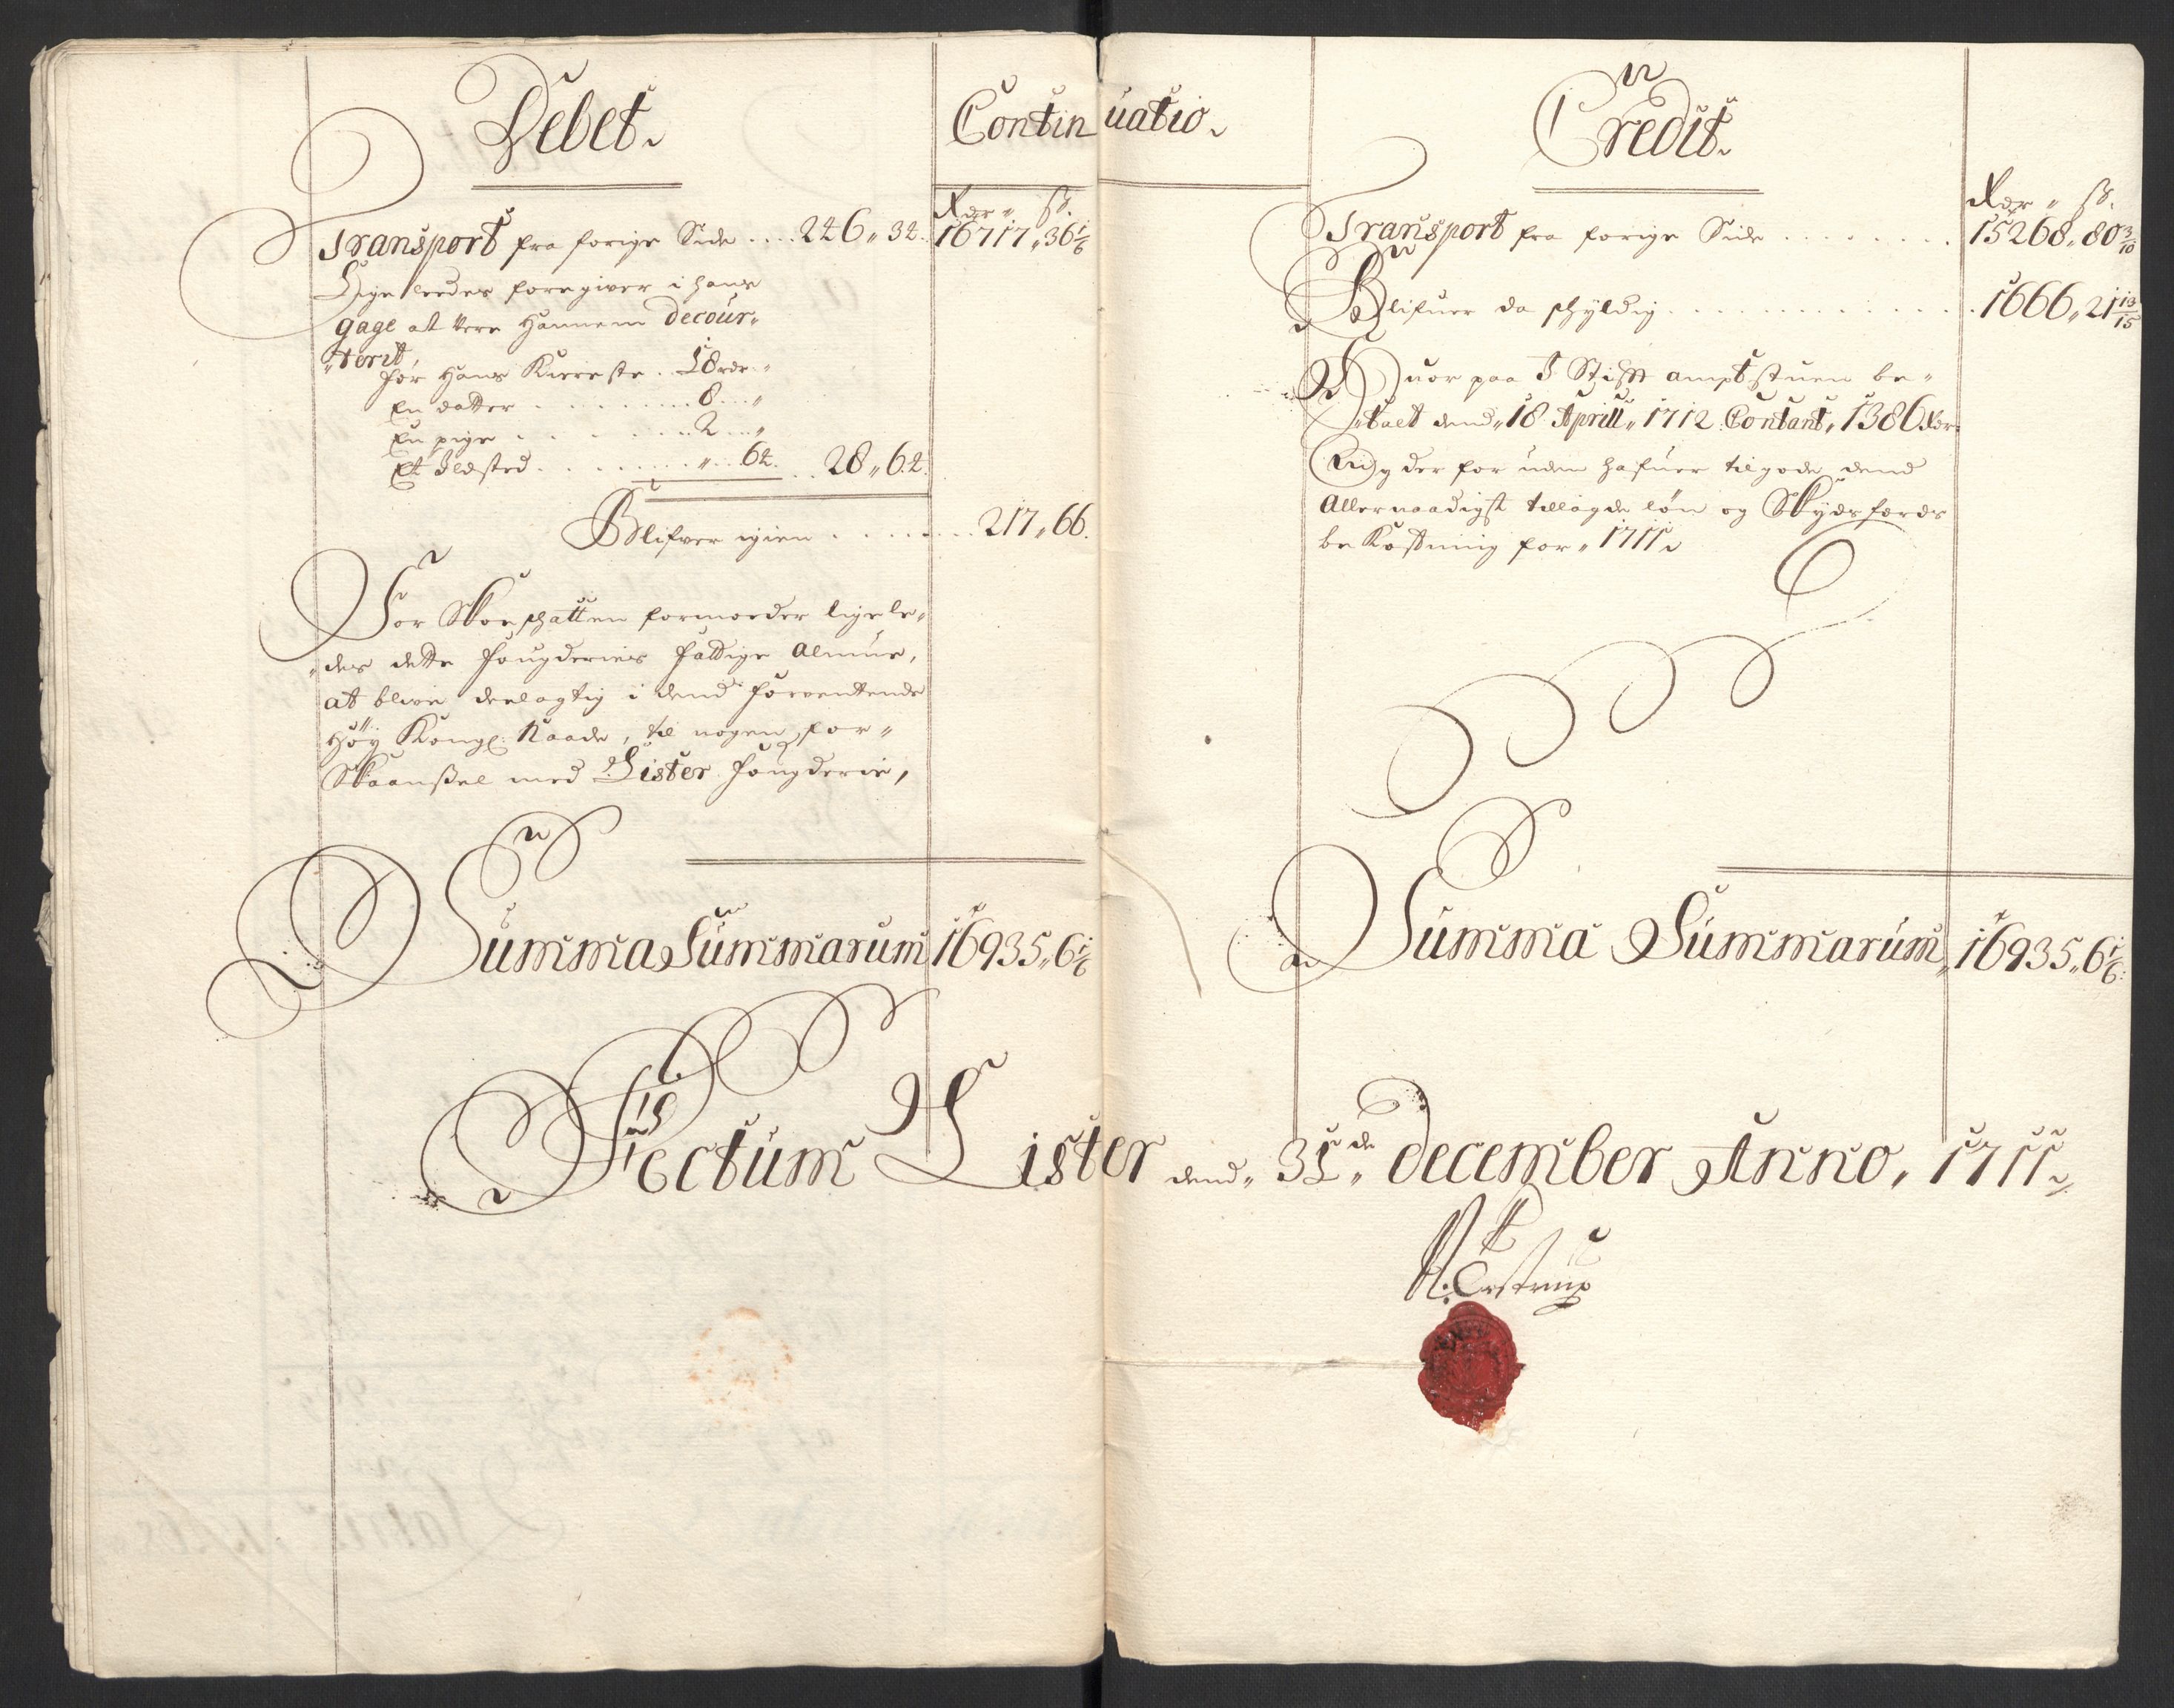 Debet.
Continuatio.
Rdr „ ß.
Transport fra forige Side .... 246 „ 32. 16717 „ 36 1/6
Lige leedes foregiver i hans
gage at vere Hannem decour„
„terit,
for Hans Kiereste . 18 rdr „
En datter . . . . . . . . 8 ... „
En pige . . . . . . . . 2 ... „
Et Ildsted . . . . . . . „ .. 62. .. 28 „ 62.
Blifver igien . . . . . . . . 217 „ 66.
For Skoeskatten formoeder ligele„
„des dette fougderies fattige Almue,
at blive deelagtig i dend forventende
Høy Kongl. Naade, til nogen for„
Skaanßel med Lister fougderie,
Summa Summarum 16935 „ 6 1/6
Credit.
Rdr „ ß.
Transport fra forige Side . . . . . . . . 15268 „ 80 3/10
Blifuer da skyldig . . . . . . . . . . . . 1666 „ 21 13/15
Huor paa I Stift amptstuen be„
„talt dend „ 18 Aprill „ 1712 Contant „ 1386 Rdr
Og der for uden hafuer tilgode dend
Allernaadigst tillagde løn og Skydsferds
be Kostning for „ 1711
Summa Summarum „ 16935 „ 6 1/6
Actum Lister dend „ 31 de „ december Anno, 1711